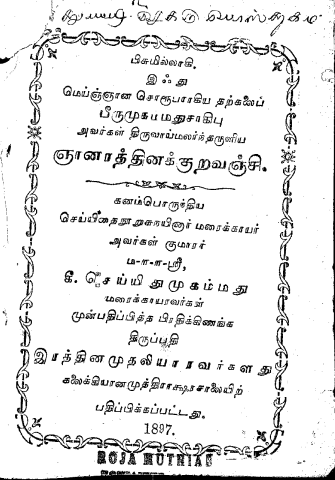 பிசுமில்லாகி.
இஃது
மெய்ஞ்ஞான சொரூபராகிய தற்கலைப்
பீருமுகம்மதுசாகிபு
அவர்கள் திருவாய்மலர்ந்தருளிய
ஞானரத்தினக்குறவஞ்சி.
கனம்பொருந்திய
செய்யிதைநூறுசுநயினார் மரைக்காயர்
அவர்கள் குமாரர்
ம-௱-௱-ஸ்ரீ,
கீ. செய்யிதுமுகம்மது
மரைக்காயரவர்கள்
முன்பதிப்பித்த பிரதிக்கிணங்க
திருப்பூதி
இரத்தினமுதலியாரவர்களது
கலைக்கியானமுத்திராக்ஷரசாலையிற்
பதிப்பிக்கப்பட்டது.
1897.
ROJA MUTHIAH